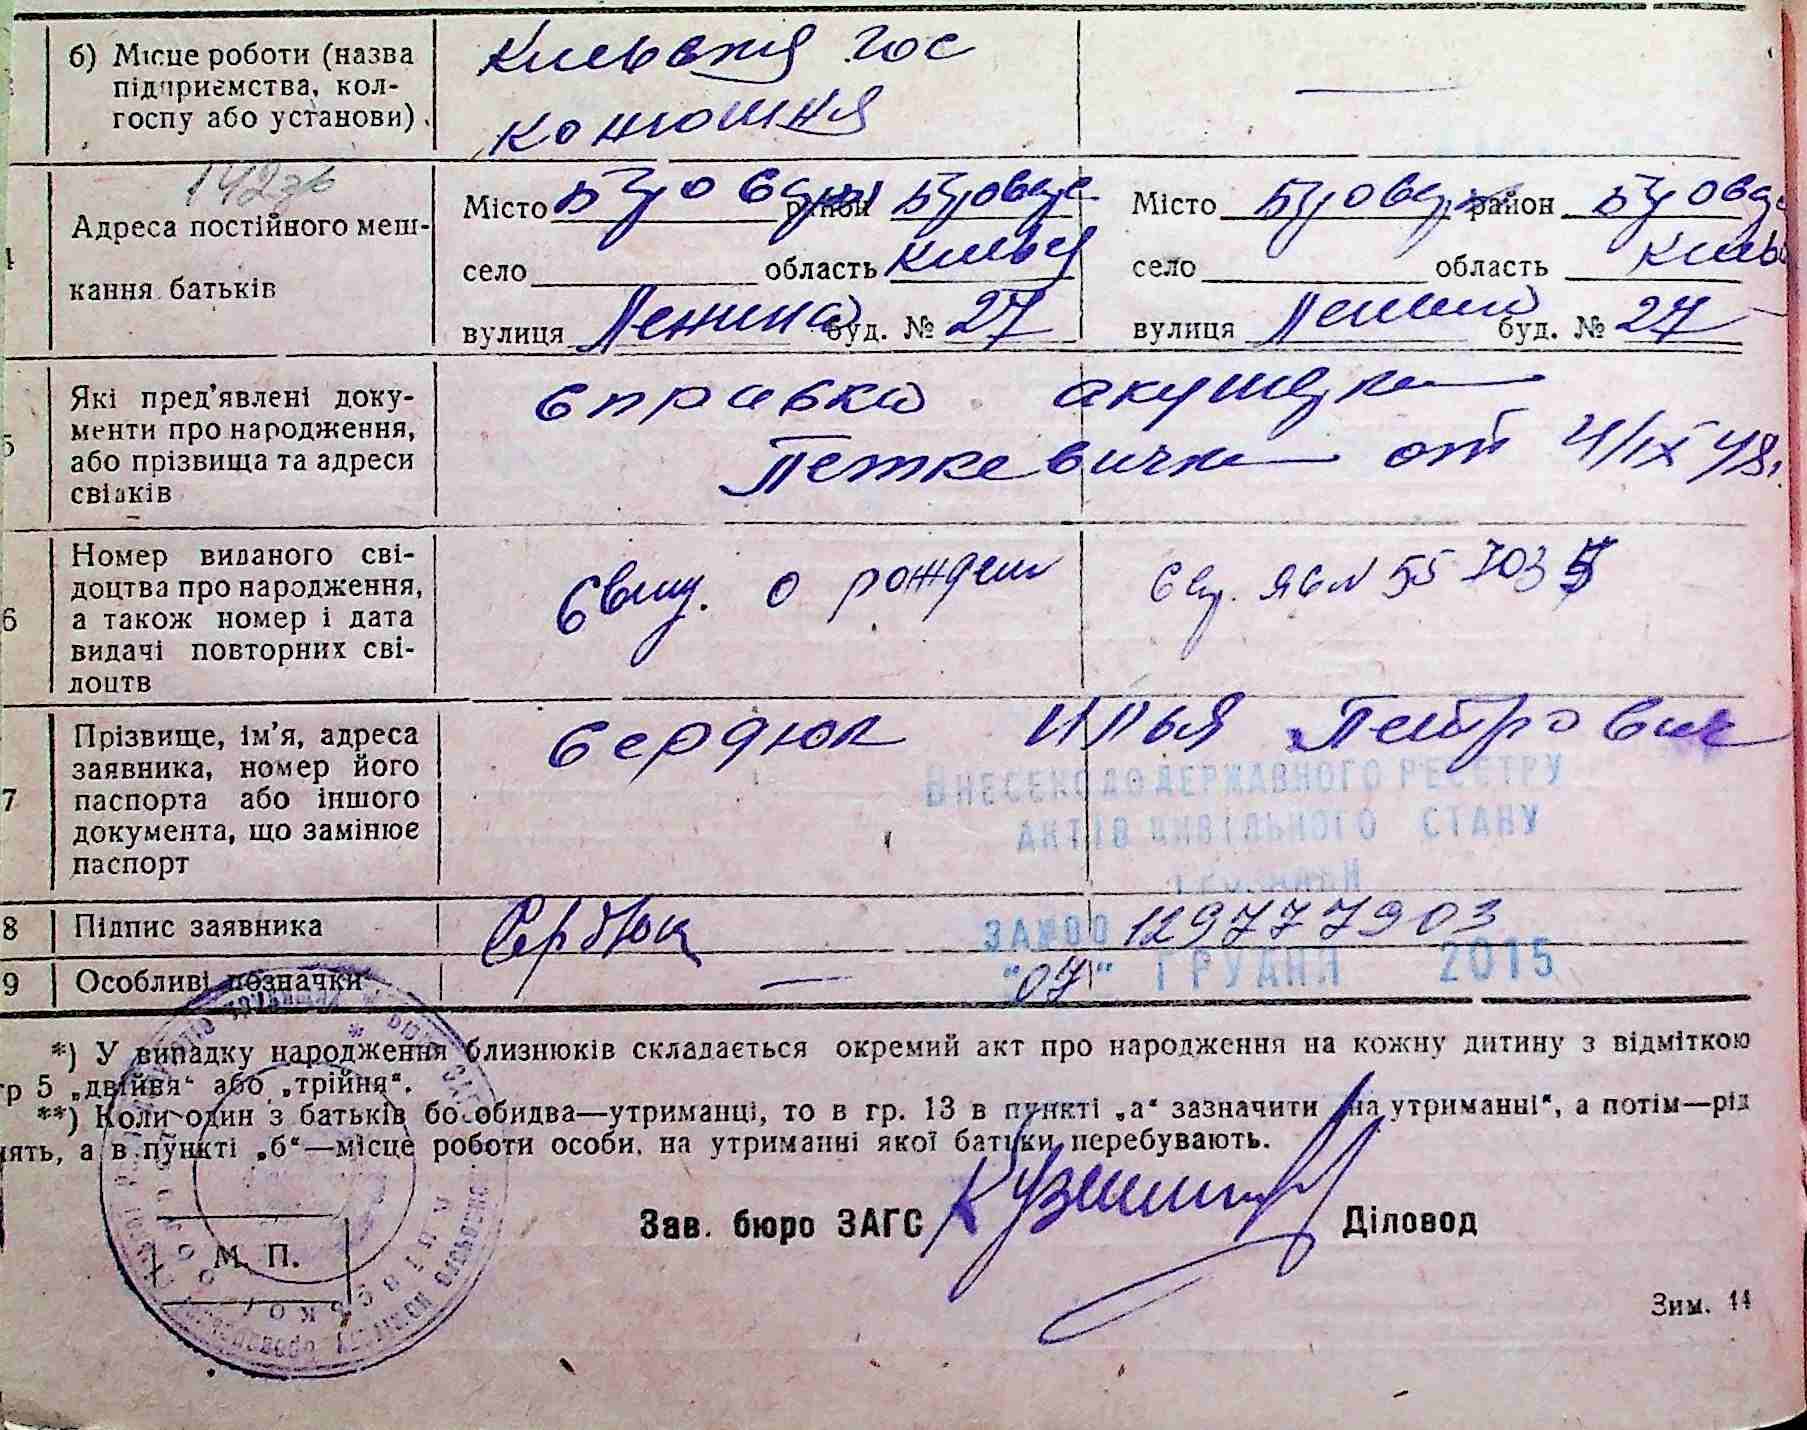 б) Місце роботи (назва
підприємства, кол-
госпу або установи)
Киевская гос
конюшня
142зв
4
Адреса постійного меш-
кання батьків
Місто Бровары район Бровар
село область Киевск
вулиця Ленина буд. № 27
Місто Бровары район Бровар
село область Киев
вулиця Ленина буд. № 27
5
Які пред'явлені доку-
менти про народження,
або прізвища та адреси
свідків
Справка акушерки
Петкевична от 4/IX 48г.
6
Номер виданого сві-
доцтва про народження,
а також номер і дата
видачі повторних сві-
доцтв
Свид. о рожден
свид. ЯБ № 557035
7
Прізвище, ім'я, адреса
заявника, номер його
паспорта або іншого
документа, що замінює
паспорт
Сердюк Илья Петрович
ВНЕСЕНО ДО ДЕРЖАВНОГО РЕЄСТРУ
АКТІВ ЦИВІЛЬНОГО СТАНУ
ГРОМАДЯН
8 Підпис заявника
Сердюк
ЗА №00 129777903
9 Особливі позначки
—
"07" ГРУДНЯ 2015
*) У випадку народження близнюків складається окремий акт про народження на кожну дитину з відміткою
гр 5 „двійня“ або „трійня“.
**) Коли один з батьків або обидва—утриманці, то в гр. 13 в пункті „а“ зазначити „на утриманні“, а потім—рід
нять, а в пункті „б“—місце роботи особи, на утриманні якої батьки перебувають.
Зав. бюро ЗАГС
Діловод
М. П.
Зим. 44